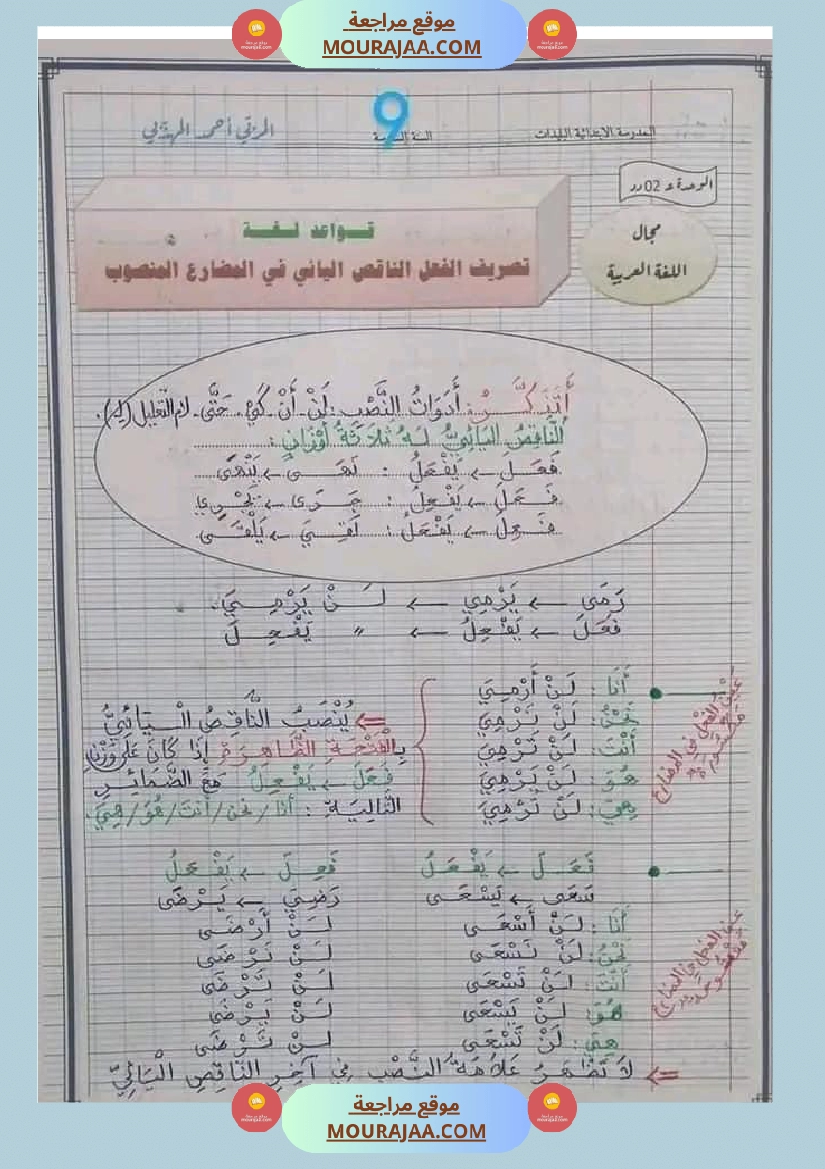 موقع مراجعة
MOURAJAA.COM
المدرسة الابتدائية البليدات
السنة
9
المربّي أحمد المهذّبي
الوحدة ع02دد
مجال
اللغة العربية
قواعد لغة
تصريف الفعل الناقص اليائي في المضارع المنصوب
أَتَذَكَّرُ: أَدَوَاتُ النَّصْبِ: لَنْ - أَنْ - كَيْ - حَتَّى - لام التعليل (لِـ).
النَّاقِصُ اليَائِيُّ لَهُ ثَلَاثَةُ أَوْزَانٍ:
فَعَلَ ← يَفْعَلُ : نَهَى ← يَنْهَى
فَعَلَ ← يَفْعِلُ : جَرَى ← يَجْرِي
فَعِلَ ← يَفْعَلُ : لَقِيَ ← يَلْقَى
رَمَى ← يَرْمِي ← لَنْ يَرْمِيَ.
فَعَلَ ← يَفْعِلُ ← " يَفْعِلَ
أَنَا : لَنْ أَرْمِيَ
نَحْنُ : لَنْ نَرْمِيَ
أَنْتَ : لَنْ تَرْمِيَ
هُوَ : لَنْ يَرْمِيَ
هِيَ : لَنْ تَرْمِيَ
⇐ يُنْصَبُ النَّاقِصُ الْيَائِيُّ
بِالْفَتْحَةِ الظَّاهِرَةِ إِذَا كَانَ عَلَى وَزْنِ
فَعَلَ ← يَفْعِلُ مَعَ الضَّمَائِرِ
التَّالِيَةِ : أنا / نحن / أنتَ / هُوَ / هِيَ.
فَعَلَ ← يَفْعَلُ فَعِلَ ← يَفْعَلُ
سَعَى ← يَسْعَى رَضِيَ ← يَرْضَى
أَنَا : لَنْ أَسْعَى لَنْ أَرْضَى
نَحْنُ : لَنْ نَسْعَى لَنْ نَرْضَى
أَنْتَ : لَنْ تَسْعَى لَنْ تَرْضَى
هُوَ : لَنْ يَسْعَى لَنْ يَرْضَى
هِيَ : لَنْ تَسْعَى لَنْ تَرْضَى
⇐ لَا تَظْهَرُ عَلَامَةُ النَّصْبِ فِي آخِرِ النَّاقِصِ الْيَائِيِّ
موقع مراجعة
MOURAJAA.COM